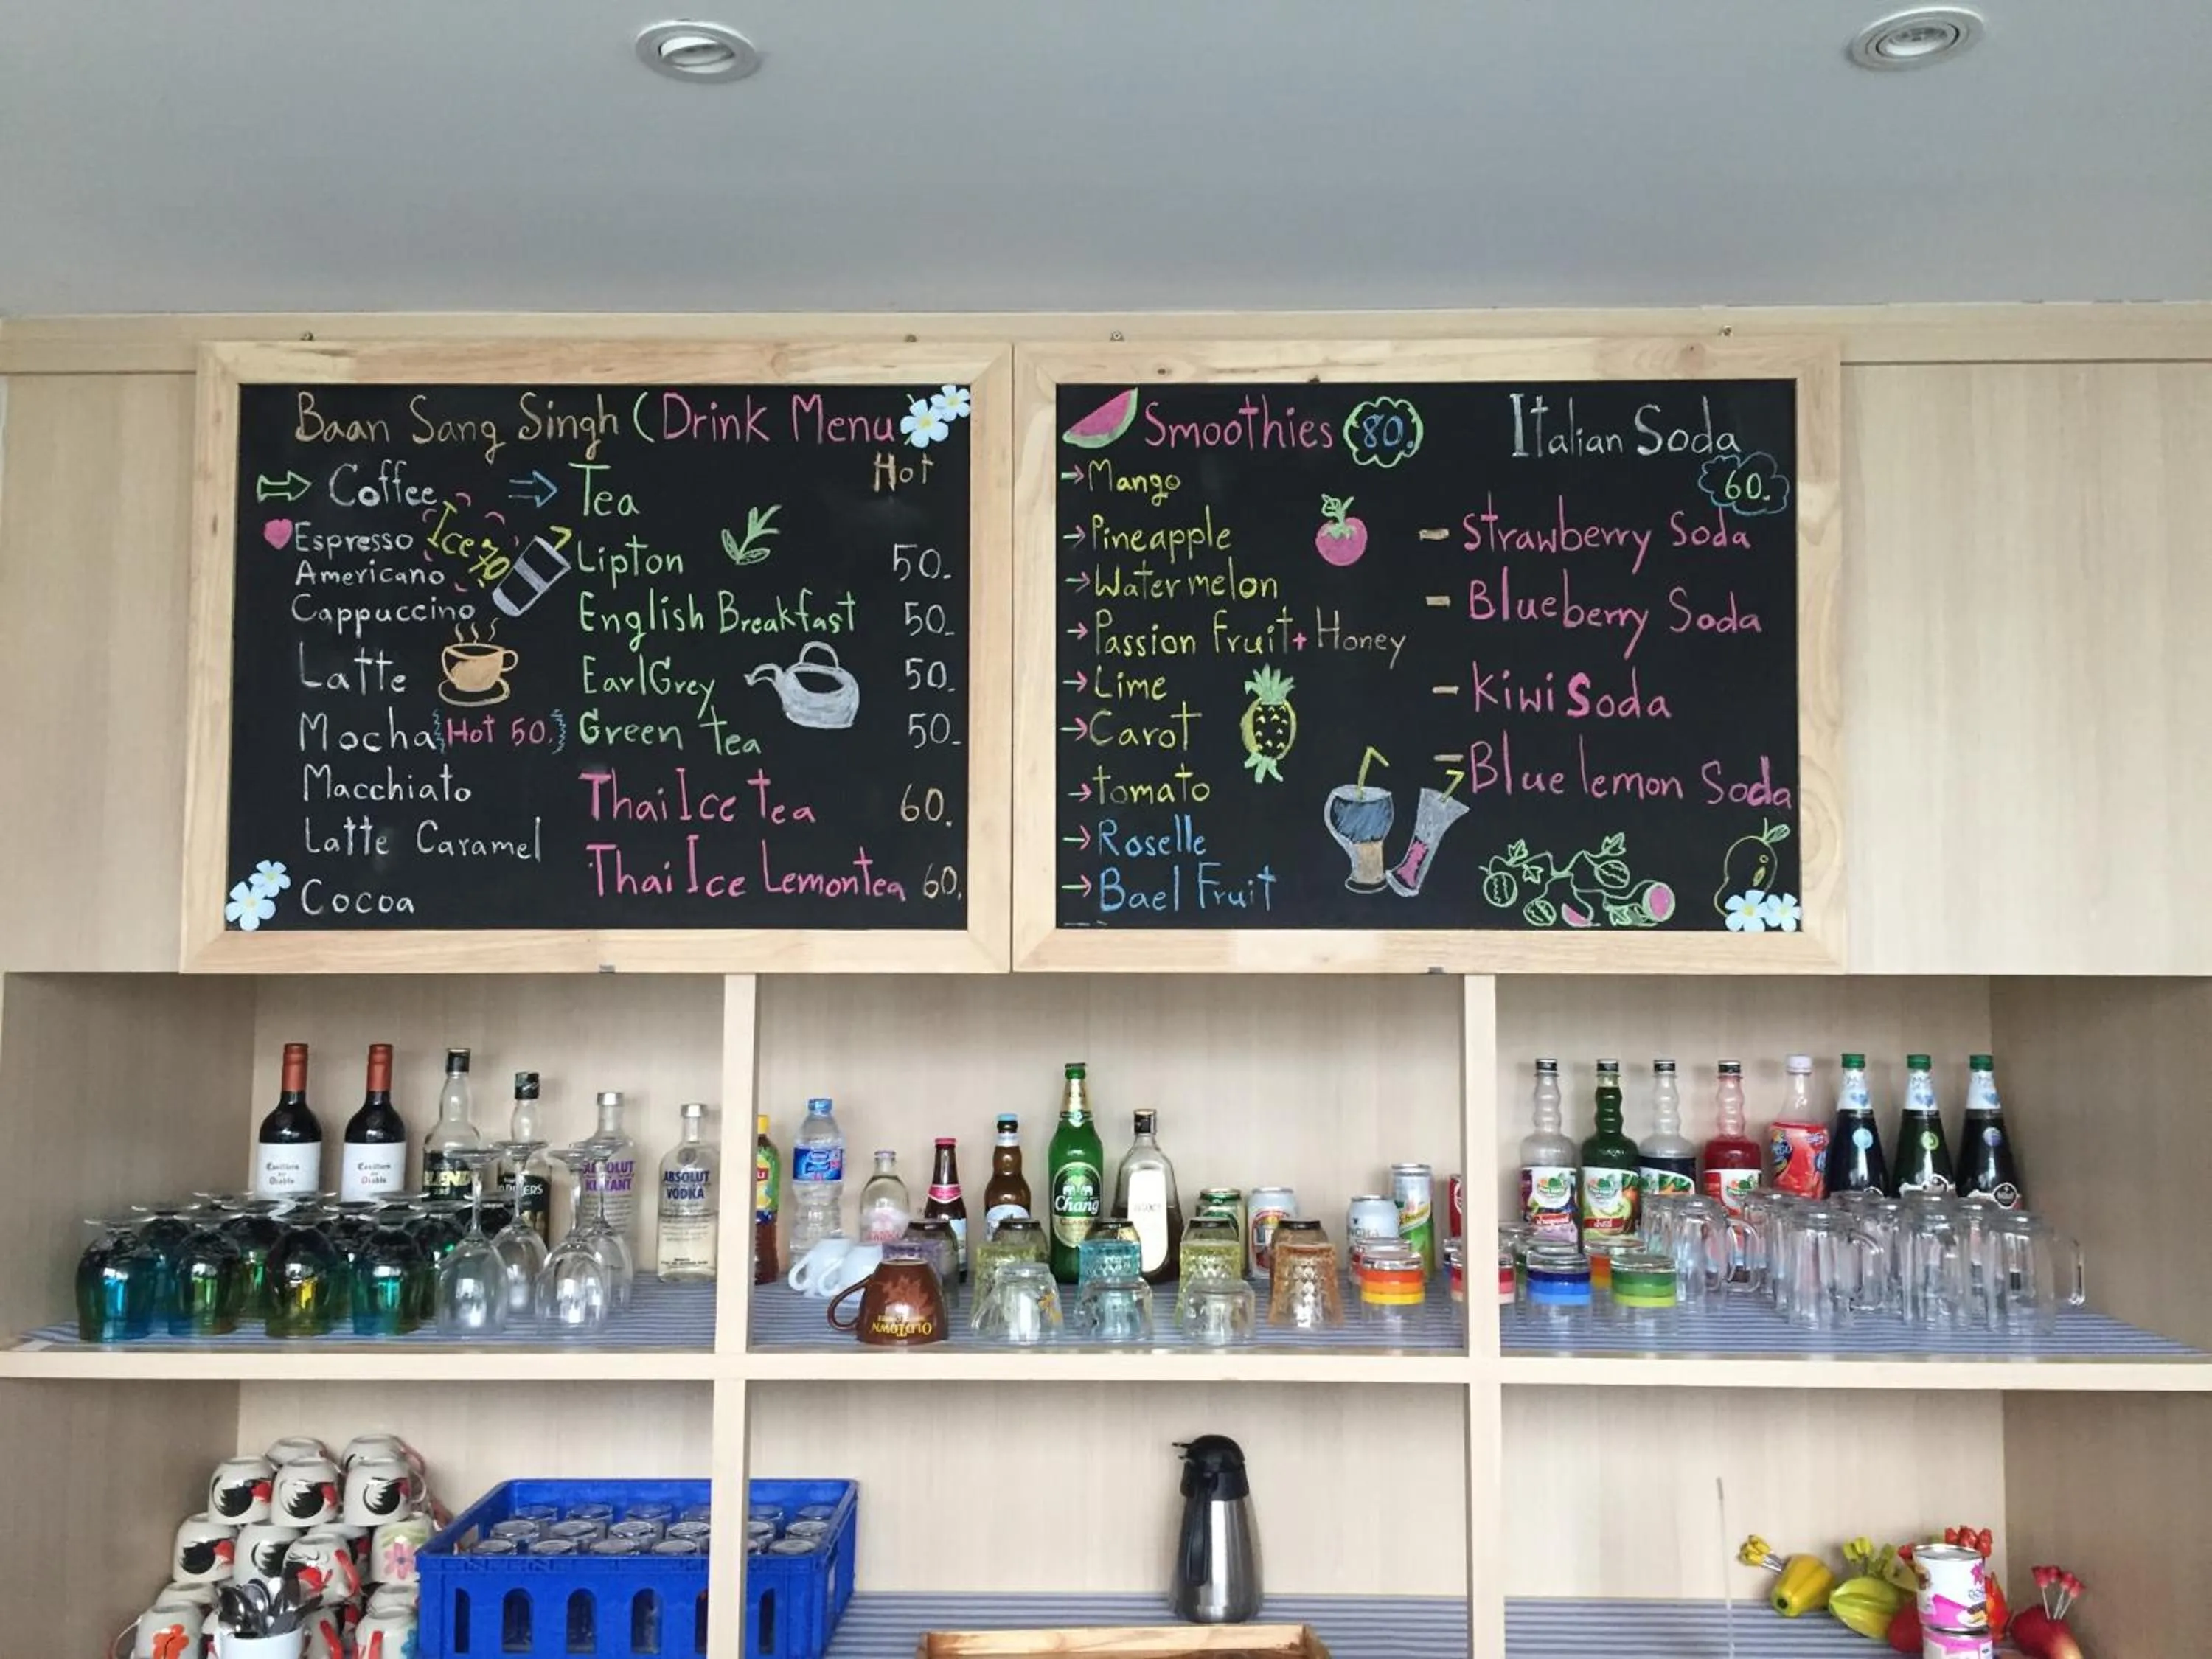 Baan Sang Singh (Drink Menu
Coffee
Ice 70
Espresso
Americano
Cappuccino
Latte
Mocha Hot 50.
Macchiato
Latte Caramel
Cocoa
Tea
Hot
Lipton 50.
English Breakfast 50.
Earl Grey 50.
Green Tea 50.
Thai Ice Tea 60.
Thai Ice Lemon tea 60.
Smoothies 80.
Mango
Pineapple
Watermelon
Passion Fruit + Honey
Lime
Carot
tomato
Roselle
Bael Fruit
Italian Soda
60.
- Strawberry Soda
- Blueberry Soda
- Kiwi Soda
- Blue lemon Soda
Casillero
del
Diablo
Casillero
del
Diablo
BLEND
ABSOLUT
KURANT
ABSOLUT
VODKA
Chang
OLDTOWN